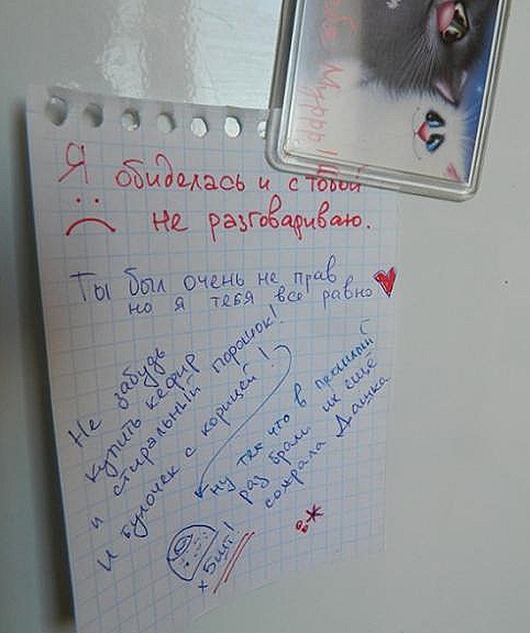 Я обиделась и с тобой
не разговариваю.
Ты был очень не прав
но я тебя всё равно
Не забудь
купить кефир
и стиральный порошок!
И булочек с корицей!
ну тех что в прошлый
раз брали их ещё
сожрала Дашка
х 5шт!